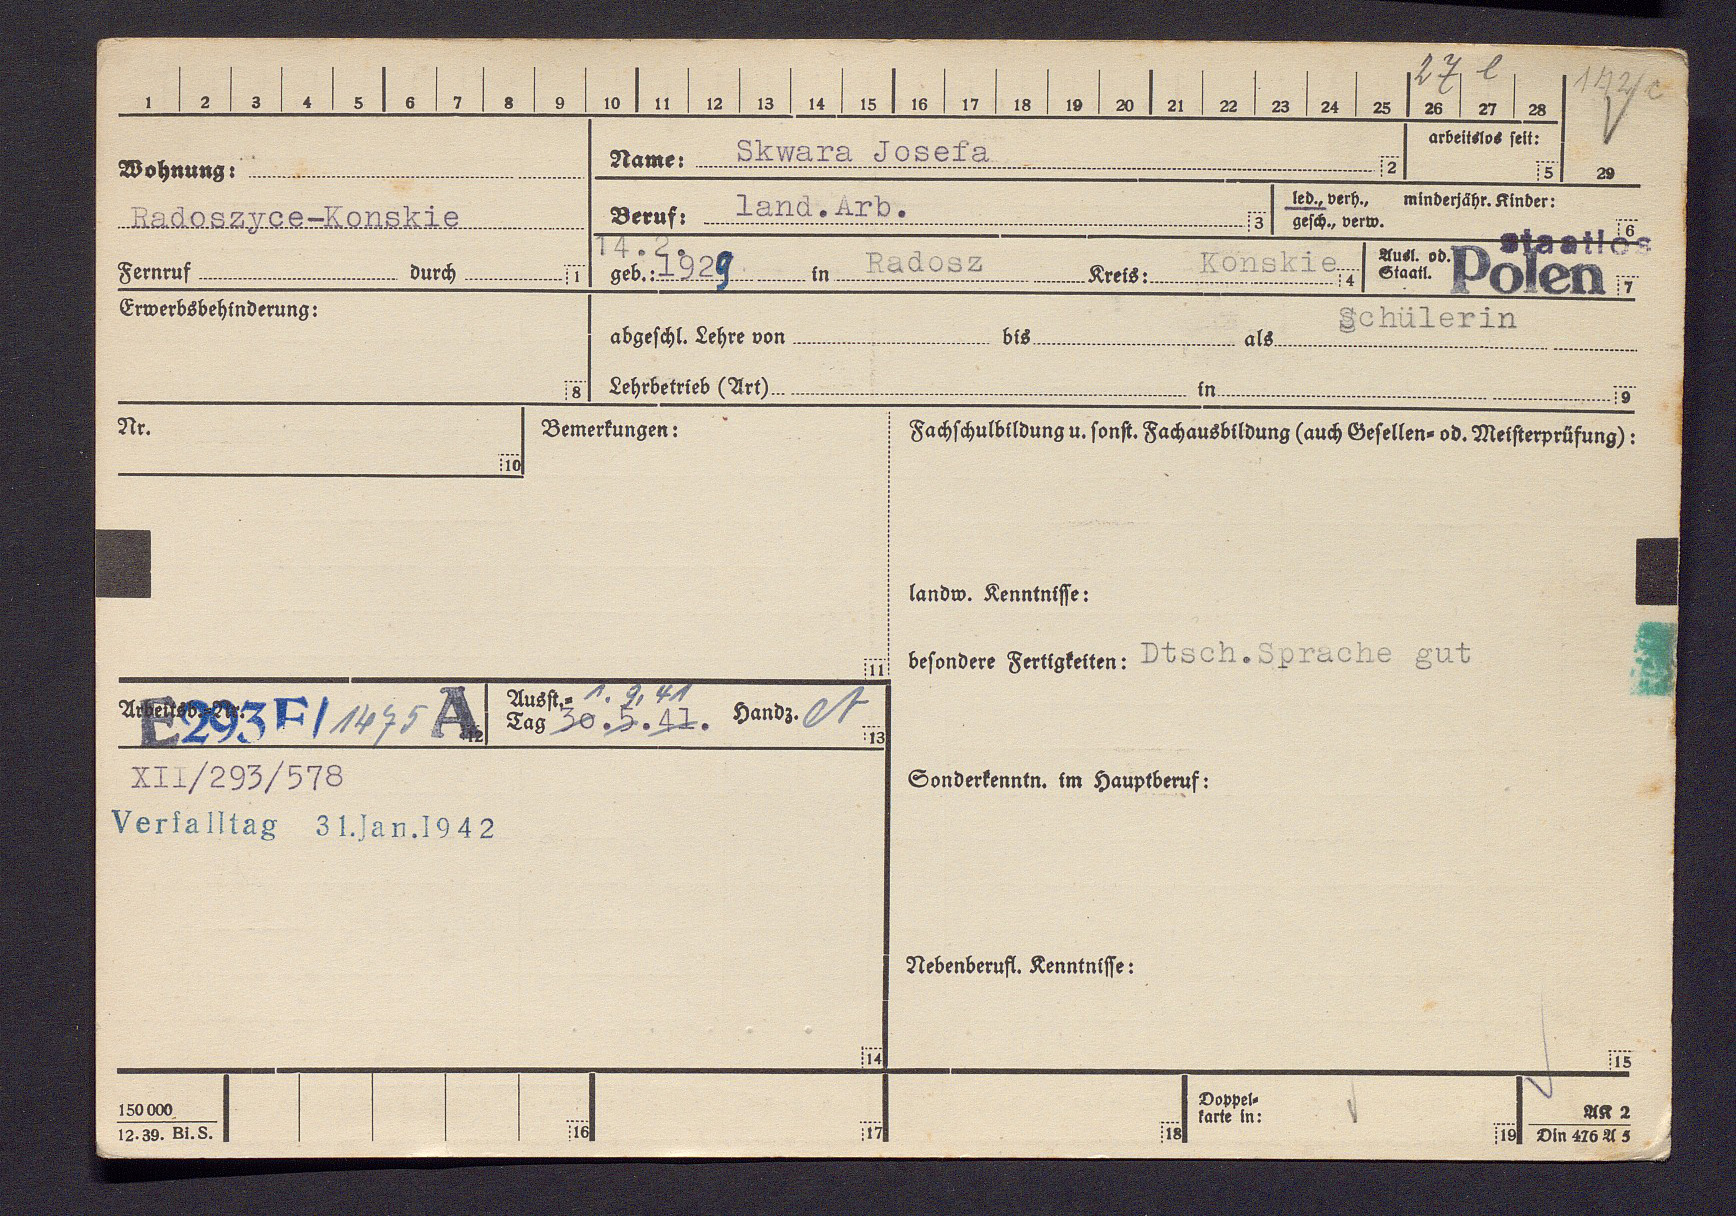 27 e
1 2 3 4 5 6 7 8 9 10 11 12 13 14 15 16 17 18 19 20 21 22 23 24 25 26 27 28
29
Wohnung:
Radoszyce-Konskie
Fernruf durch 1
Name: Skwara Josefa 2
arbeitslos seit: 5
Beruf: land.Arb. 3
led., verh., minderjähr. Kinder:
gesch., verw. 6
14.2.
geb.: 1929 in Radosz Kreis: Konskie 4
Ausl. od.
Staatl. staatlos
Polen 7
Erwerbsbehinderung: 8
Schülerin
abgeschl. Lehre von bis als
Lehrbetrieb (Art) in 9
Nr. 10
Bemerkungen: 11
Fachschulbildung u. sonst. Fachausbildung (auch Gesellen- od. Meisterprüfung):
landw. Kenntnisse:
besondere Fertigkeiten: Dtsch.Sprache gut
Arbeitsb.-Nr. E293F/1475 A 12
Ausst.- 1. 9. 41
Tag 30.5.41. Handz. 13
XII/293/578
Verfalltag 31.Jan.1942
14
Sonderkenntn. im Hauptberuf:
Nebenberufl. Kenntnisse:
15
150 000
12.39. Bi.S.
16
17
18
Doppel-
karte in: 19
AK 2
Din 476 A 5